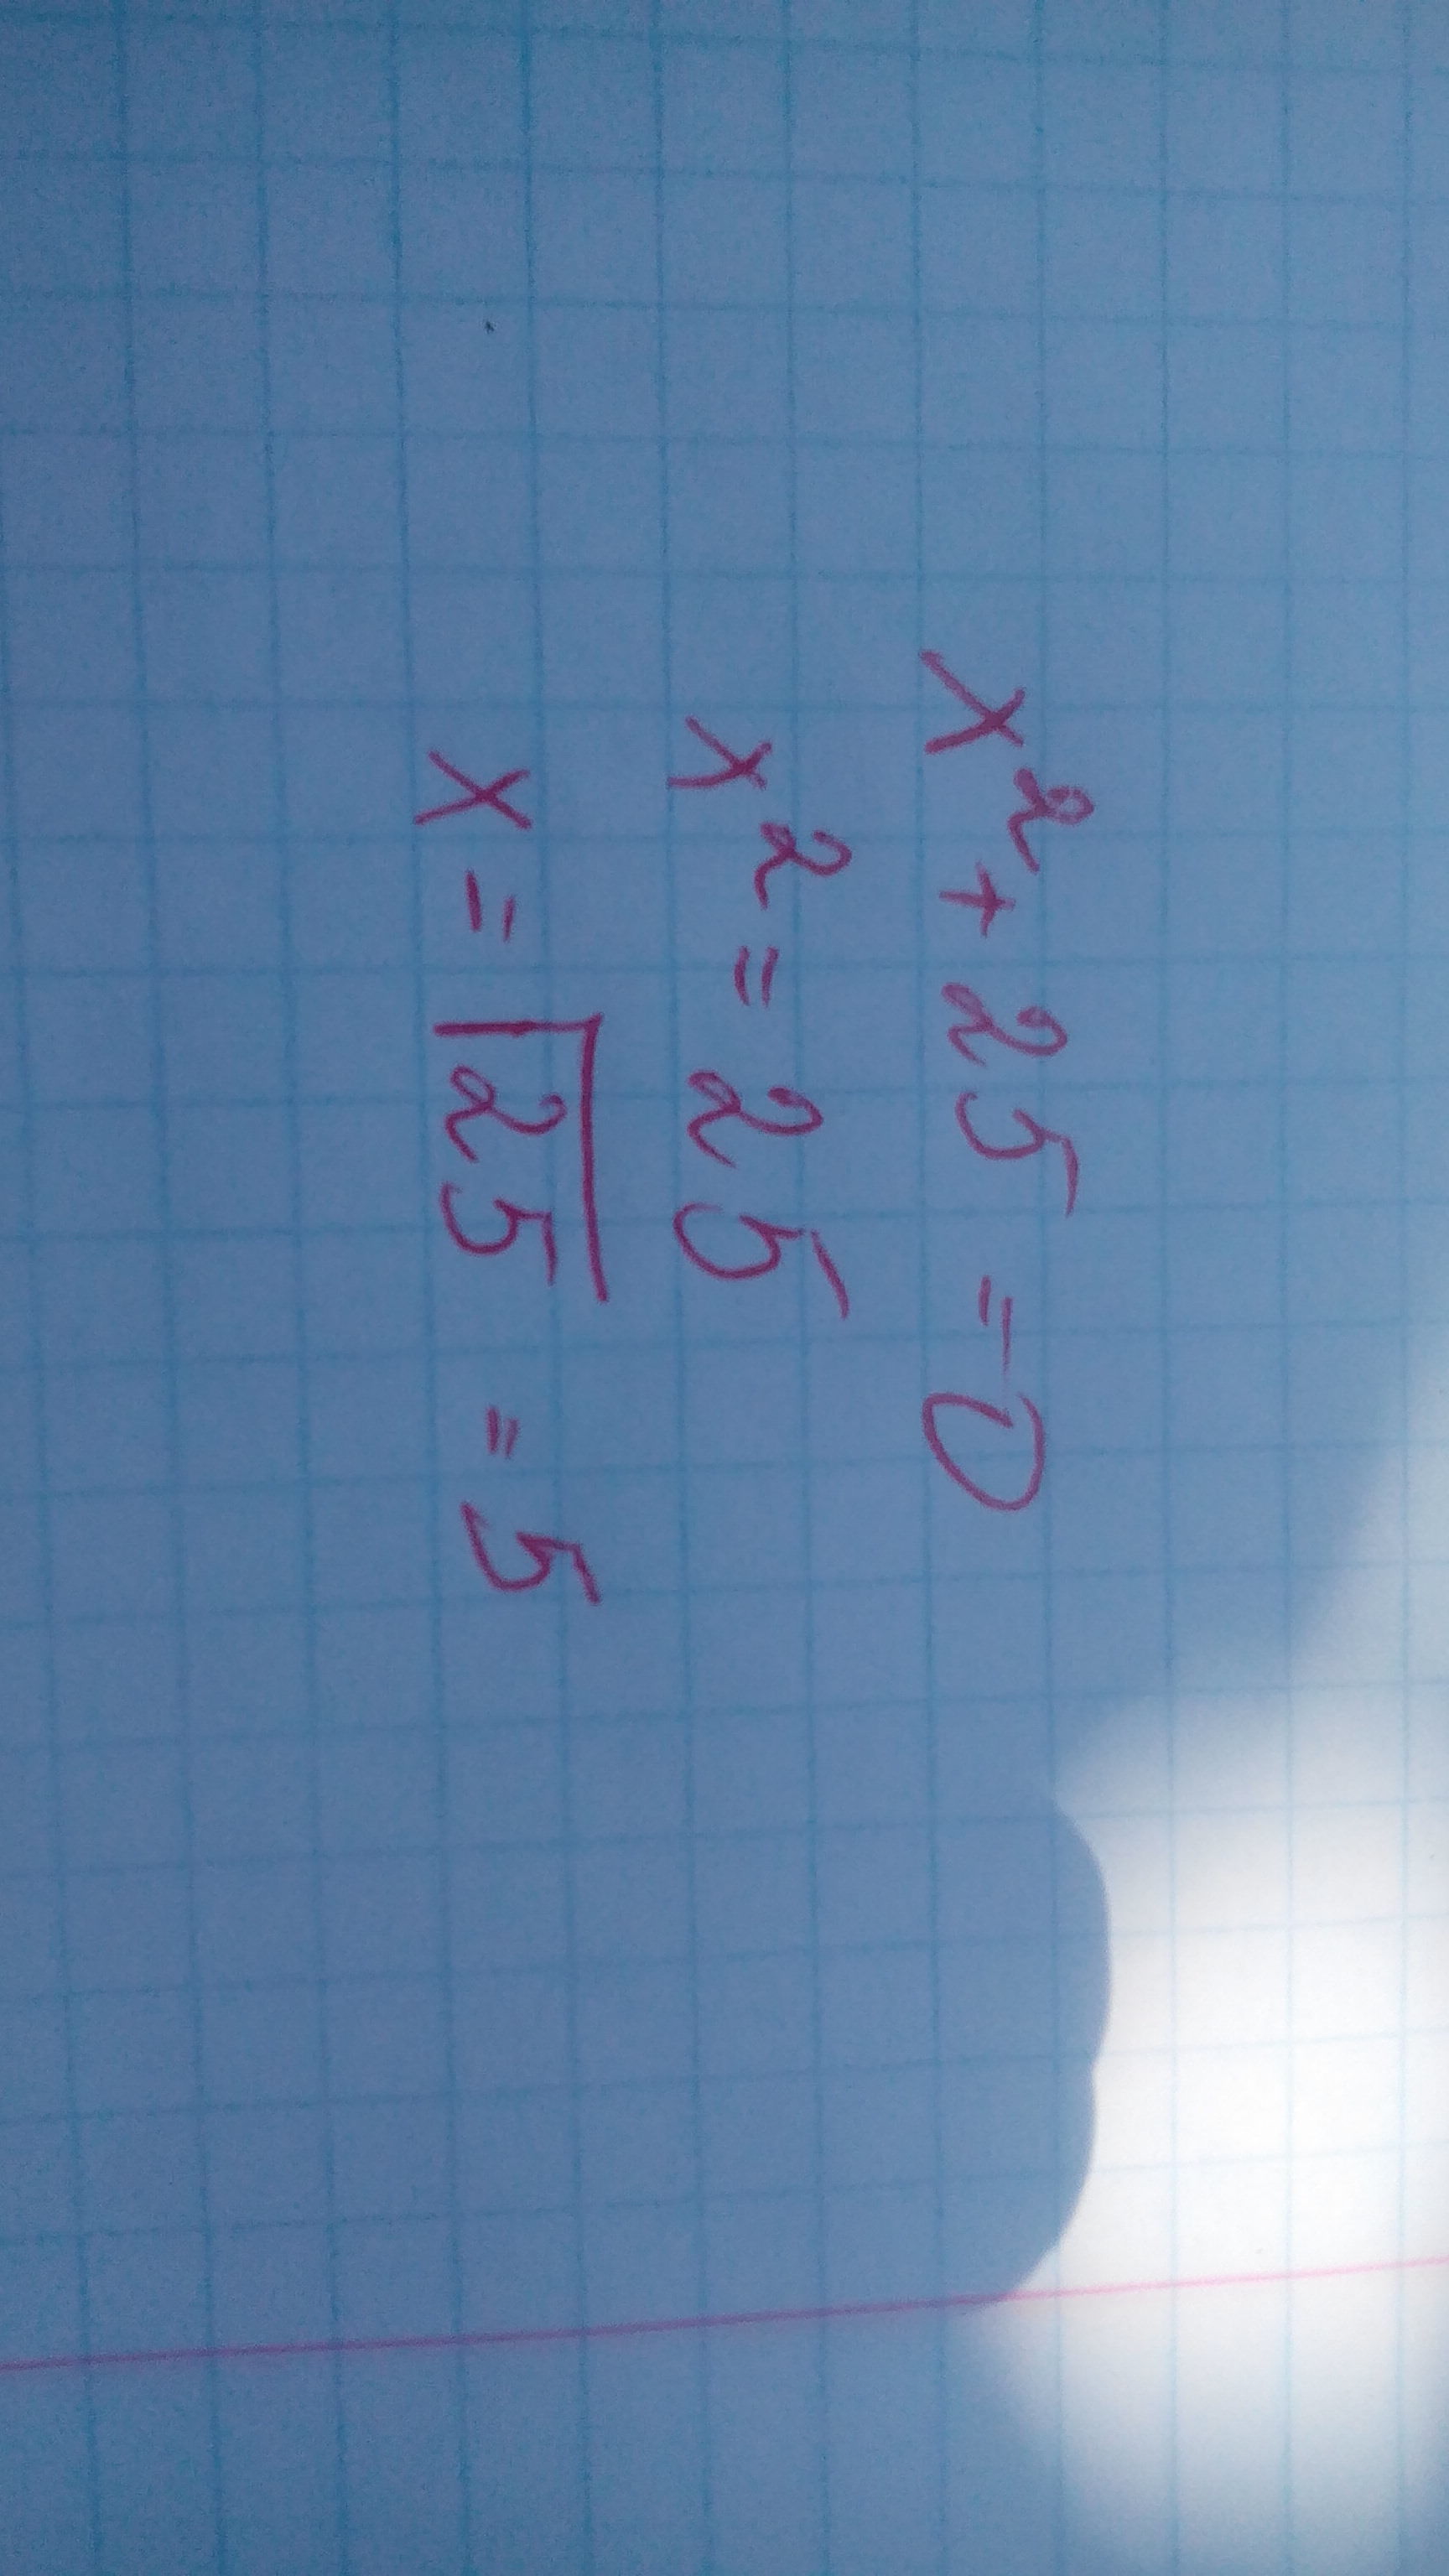 x² + 25 = 0
x² = 25
x = √25 = 5